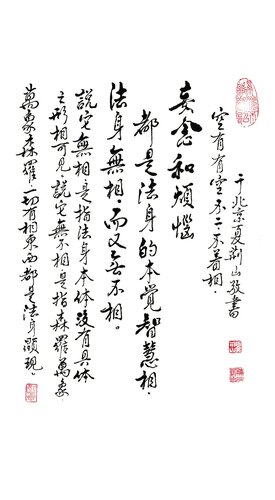 于北京夏荆山敬書
空有有空不二不著相。
妄念和煩惱
都是法身的本覺智慧相,
法身無相,而又無不相。
說它無相,是指法身本体没有具体
之形相可見,說它無不相,是指森羅萬象,
萬象森羅,一切有相東西都是法身顯現。